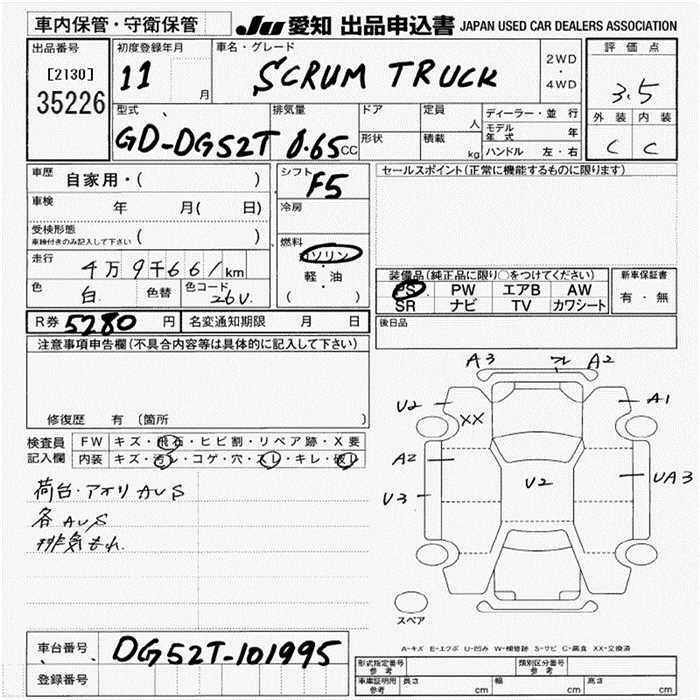 車内保管・守衛保管 JU 愛知 出品申込書 JAPAN USED CAR DEALERS ASSOCIATION
出品番号
[2130]
35226
初度登録年月
11 月
車名・グレード
SCRUM TRUCK
2WD
・
4WD
評価点
3.5
外装 内装
C C
型式
GD-DG52T
排気量
0.65 CC
ドア
形状
定員
人
積載
kg
ディーラー・並行
モデル年式 年
ハンドル 左・右
車歴 自家用・( )
車検 年 月( 日)
受検形態
車検付きのみ記入して下さい ( )
走行 4万9千661km
色 白 色替 色コード 26U
シフト
F5
冷房
燃料
ガソリン
・
軽・油
( )
セールスポイント(正常に機能するものに限ります)
装備品(純正品に限り○をつけてください)
PS PW エアB AW
SR ナビ TV カワシート
新車保証書
有・無
R券 5280 円 名変通知期限 月 日
後日品
注意事項申告欄(不具合内容等は具体的に記入して下さい)
修復歴 有 (箇所 )
検査員
記入欄
FW キズ・飛石・ヒビ割・リペア跡・X要
内装 キズ・汚レ・コゲ・穴・スレ・キレ・破レ
荷台・アオリ AUS
各AUS
排気もれ
A3 フレ A2
U2 XX A1
A2 U2 UA3
U3
スペア
A-キズ E-エクボ U-凹み W-補修跡 S-サビ C-腐食 XX-交換済
車台番号 DG52T-101995
登録番号
形式指定番号
参考
類別区分番号
参考
車庫証明用
参考
長さ cm 幅 cm 高さ cm